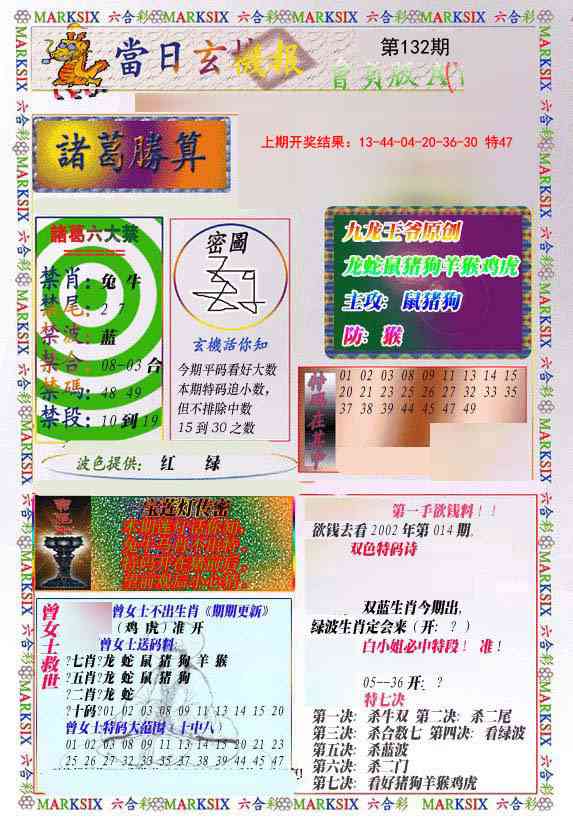 MARKSIX 六合彩 MARKSIX 六合彩 MARKSIX 六合彩 MARKSIX 六合彩 MARKSIX
當日玄機報
第132期
諸葛勝算
上期开奖结果：13-44-04-20-36-30 特47
諸葛六大禁
禁肖：兔 牛
禁尾：2 7
禁波：蓝
禁合：08-03 合
禁碼：48 49
禁段：10 到 19
密圖
玄機话你知
今期平码看好大数
本期特码追小数，
但不排除中数
15 到 30 之数
九龙王爷原创
龙蛇鼠猪狗羊猴鸡虎
主攻：鼠猪狗
防：猴
特碼在其中
01 02 03 08 09 11 13 14 15
20 21 23 25 26 27 32 33 35
37 38 39 44 45 47 49
波色提供： 红 绿
宝莲灯传密
曾女士救世
曾女士不出生肖《期期更新》
（鸡 虎）准 开
曾女士送码料:
?七肖?龙 蛇 鼠 猪 狗 羊 猴
?五肖?龙 蛇 鼠 猪 狗
?二肖?龙 蛇
?十码?01 02 03 08 09 11 13 14 15 20
曾女士特码大范围〈十中八〉
01 02 03 08 09 11 13 14 15 20 21 23
25 26 27 32 33 35 37 38 39 44 45 47
第一手欲钱料！！
欲钱去看 2002 年第 014 期。
双色特码诗
双蓝生肖今期出，
绿波生肖定会来（开：？）
白小姐必中特段！ 准！
05--36 开：？
特七决
第一决：杀牛双 第二决：杀二尾
第三决：杀合数七 第四决：看绿波
第五决：杀蓝波
第六决：杀二门
第七决：看好猪狗羊猴鸡虎
MARKSIX 六合彩 MARKSIX 六合彩 MARKSIX 六合彩 MARKSIX 六合彩 MARKSIX